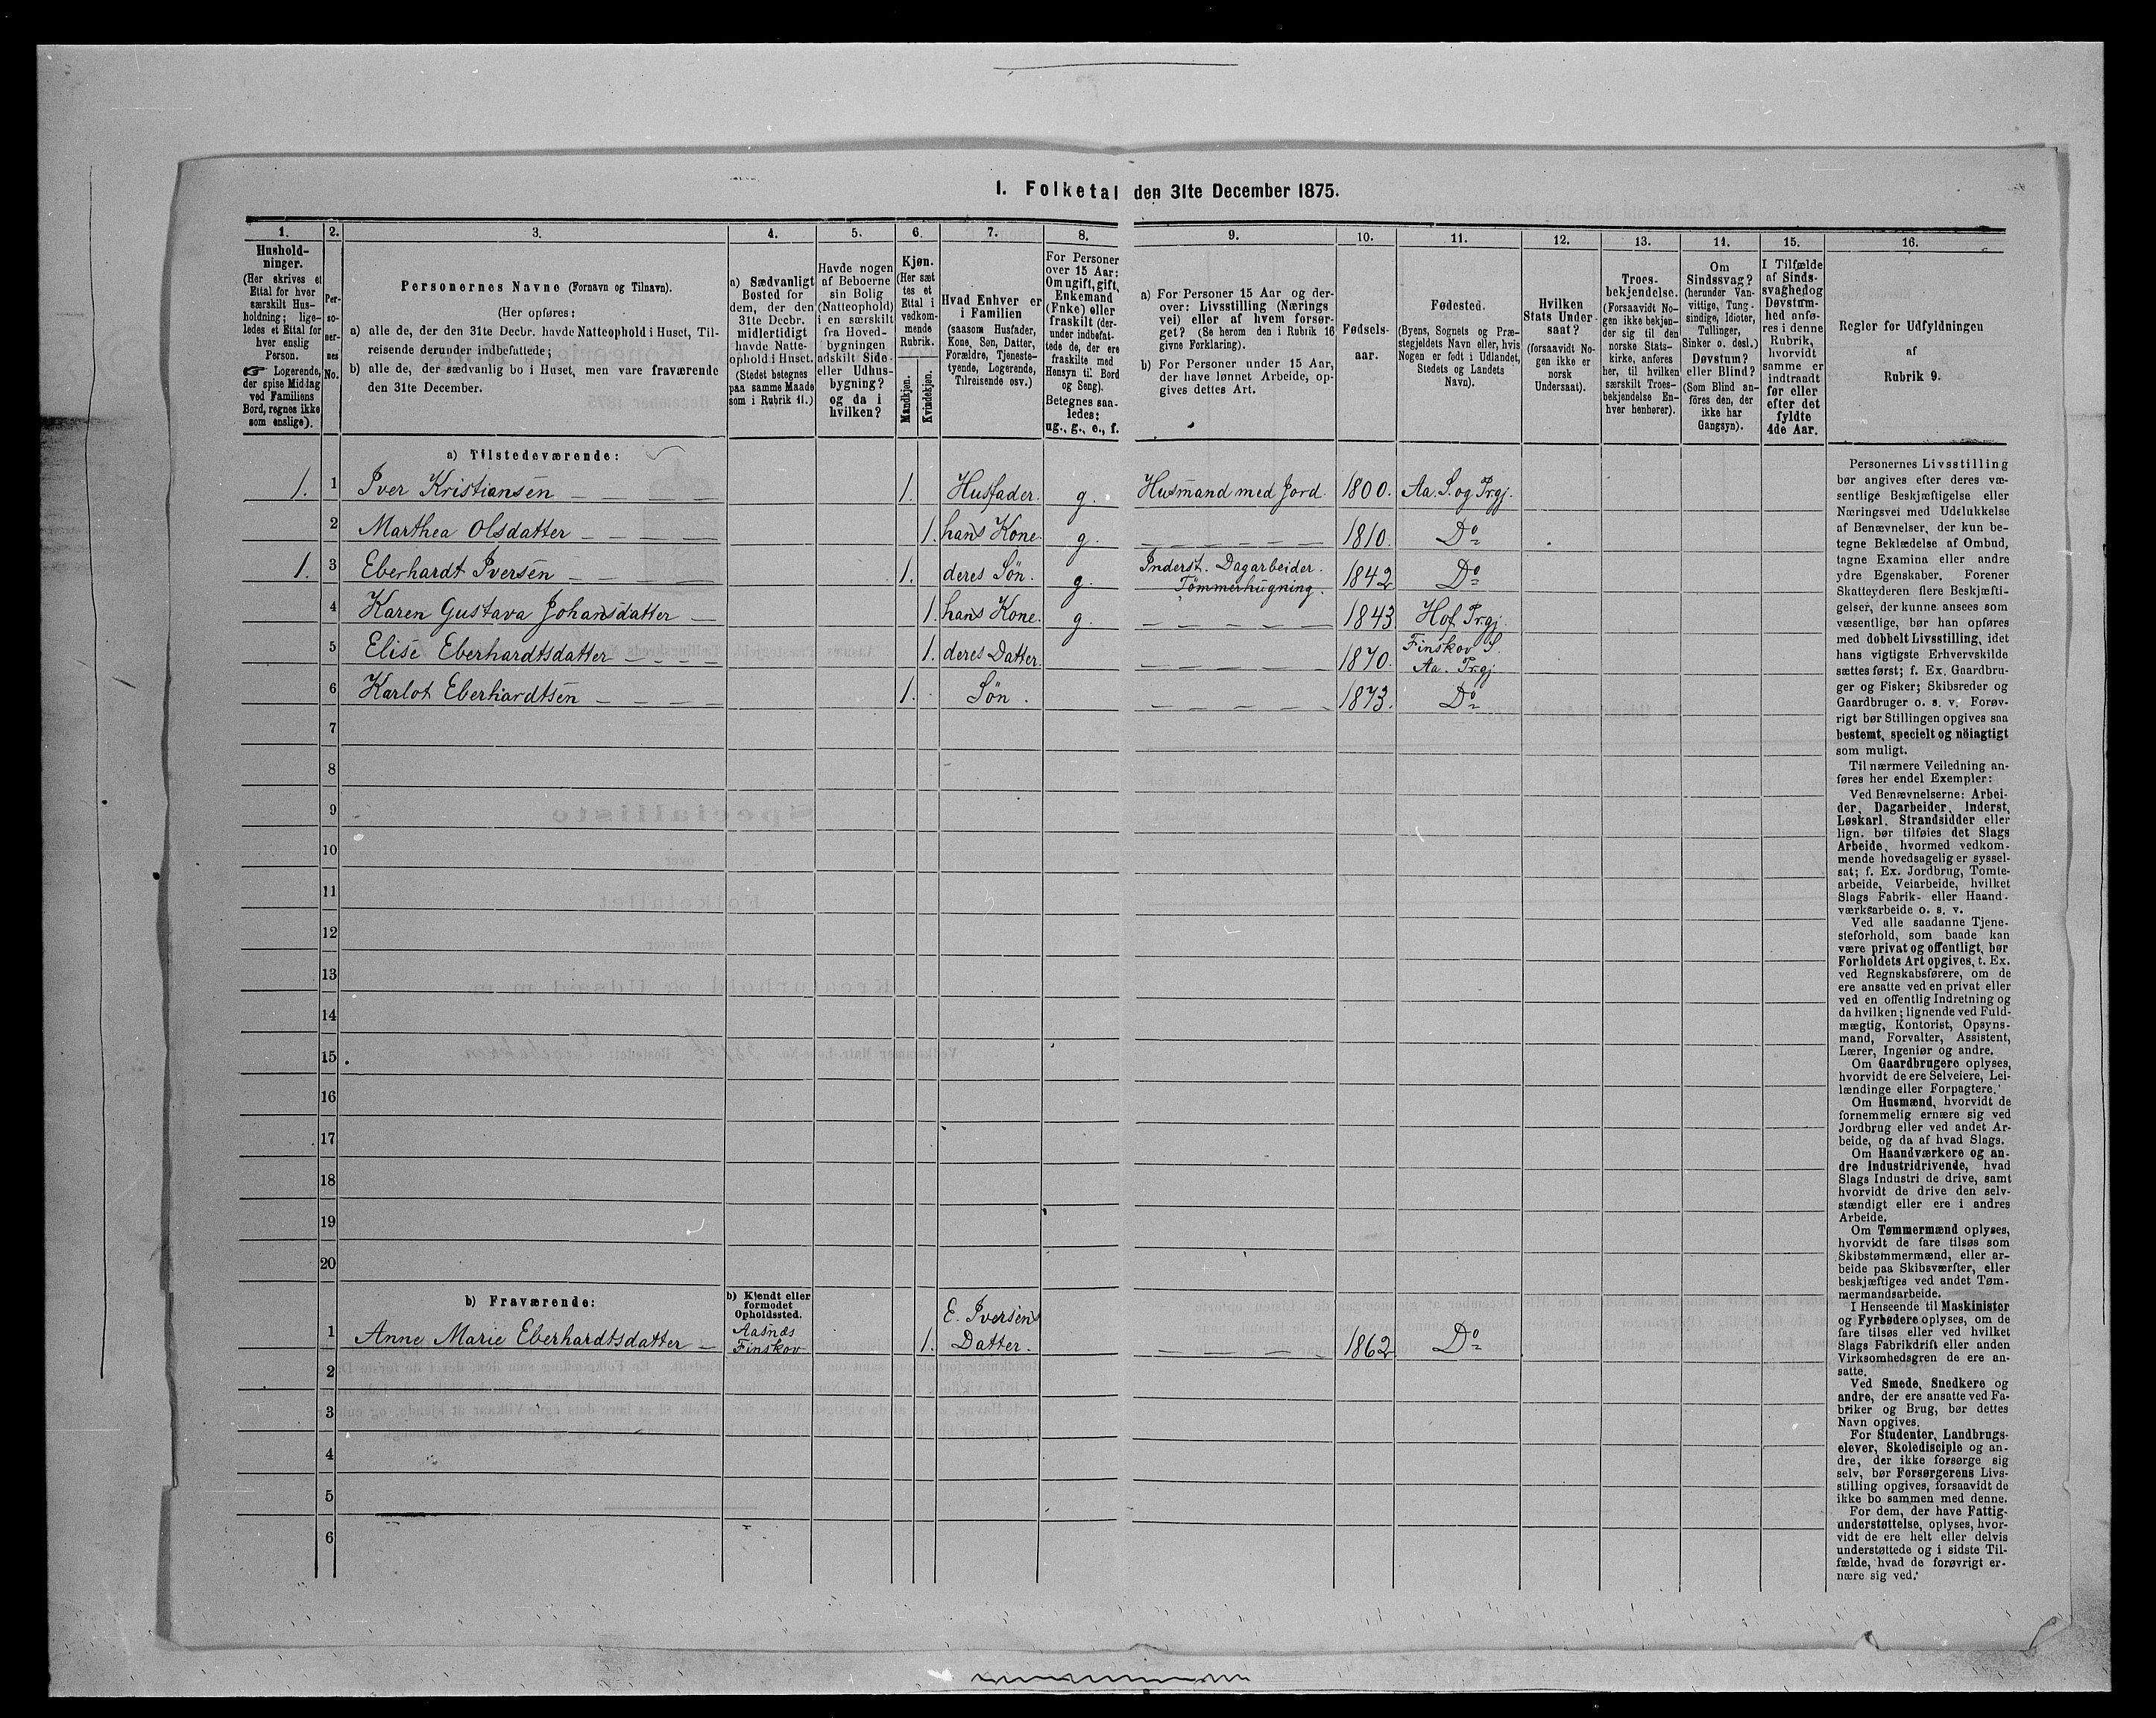 1. Folketal den 31te December 1875.
1. 2. 3. 4. 5. 6. 7. 8. 9. 10. 11. 12. 13. 14. 15. 16.
Hushold-
ninger.
(Her skrives et
Ettal for hver
særskilt Hus-
holdning; lige-
ledes et Ettal for
hver enslig
Person.
☞ Logerende,
der spise Middag
ved Familiens
Bord, regnes ikke
som enslige).
Per-
so-
ner-
nes
No.
Personernes Navne (Fornavn og Tilnavn).
(Her opføres:
a) alle de, der den 31te Decbr. havde Natteophold i Huset, Til-
reisende derunder indbefattede;
b) alle de, der sædvanlig bo i Huset, men vare fraværende
den 31te December.
a) Sædvanligt
Bosted for
dem, der den
31te Decbr.
midlertidigt
havde Natte-
ophold i Huset.
(Stedet betegnes
paa samme Maade
som i Rubrik 11.)
Havde nogen
af Beboerne
sin Bolig
(Natteophold)
i en særskilt
fra Hoved-
bygningen
adskilt Side-
eller Udhus-
bygning?
og da i
hvilken?
Kjøn.
(Her sæt
tes et
Ettal i
vedkom-
mende
Rubrik.
Mandkjøn.
Kvindekjøn.
Hvad Enhver er
i Familien
(saasom Husfader,
Kone, Søn, Datter,
Forældre, Tjeneste-
tyende, Logerende,
Tilreisende osv.)
For Personer
over 15 Aar:
Om ugift, gift,
Enkemand
(Enke) eller
fraskilt (der-
under indbefat-
tede de, der ere
fraskilte med
Hensyn til Bord
og Seng).
Betegnes saa-
ledes:
ug., g., e., f.
a) For Personer 15 Aar og der-
over: Livsstilling (Nærings
vei) eller af hvem forsør-
get? (Se herom den i Rubrik 16
givne Forklaring).
b) For Personer under 15 Aar,
der have lønnet Arbeide, op-
gives dettes Art.
Fødsels-
aar.
Fødested.
(Byens, Sognets og Præ-
stegjeldets Navn eller, hvis
Nogen er født i Udlandet,
Stedets og Landets
Navn).
Hvilken
Stats Under-
saat?
(forsaavidt No-
gen ikke er
norsk
Undersaat).
Troes-
bekjendelse.
(Forsaavidt No-
gen ikke bekjen-
der sig til den
norske Stats-
kirke, anføres
her, til hvilken
særskilt Troes-
bekjendelse En-
hver henhører).
Om
Sindssvag?
(herunder Van-
vittige, Tung-
sindige, Idioter,
Tullinger,
Sinker o. desl.)
Døvstum?
eller Blind?
(Som Blind an-
föres den, der
ikke har
Gangsyn).
I Tilfælde
af Sinds-
svaghed og
Døvstum-
hed anfø-
res i denne
Rubrik,
hvorvidt
samme er
indtraadt
før eller
efter det
fyldte
4de Aar.
Regler for Udfyldningen
af
Rubrik 9.
a) Tilstedeværende:
1. 1 Iver Kristiansen 1. Husfader. g. Husmand med Jord. 1800. Aa. S. og Prgj.
2 Marthea Olsdatter 1. hans Kone. g. 1810. Do
1. 3 Eberhardt Iversen 1. deres Søn. g. Inderst. Dagarbeider. 1842 Do
Tømmerhugning.
4 Karen Gustava Johansdatter 1. hans Kone. g. 1843 Hof Prgj.
5 Elise Eberhardtsdatter 1. deres Datter. 1870. Finskov S.
Aa. Prgj
6 Karlot Eberhardtsen 1. Søn. 1873. Do
7
8
9
10
11
12
13
14
15
16
17
18
19
20
b) Fraværende:
b) Kjendt eller
formodet
Opholdssted.
1 Anne Marie Eberhardtsdatter Aasnæs
Finskov 1. E. Iversens
Datter. 1862 Do
2
3
4
5
6
Personernes Livsstilling
bør angives efter deres væ-
sentlige Beskjæftigelse eller
Næringsvei med Udelukkelse
af Benævnelser, der kun be-
tegne Beklædelse af Ombud,
tagne Examina eller andre
ydre Egenskaber. Forener
Skatteyderen flere Beskjæfti-
gelser, der kunne ansees som
væsentlige, bør han opføres
med dobbelt Livsstilling, idet
hans vigtigste Erhvervskilde
sættes først; f. Ex. Gaardbru-
ger og Fisker; Skibsreder og
Gaardbruger o. s. v. Forøv-
rigt bør Stillingen opgives saa
bestemt, specielt og nöiagtigt
som muligt.
Til nærmere Veiledning an-
føres her endel Exempler:
Ved Benævnelserne: Arbei-
der, Dagarbeider, Inderst,
Løskarl, Strandsidder eller
lign. bør tilføies det Slags
Arbeide, hvormed vedkom-
mende hovedsagelig er syssel-
sat; f. Ex. Jordbrug, Tomte-
arbeide, Veiarbeide, hvilket
Slags Fabrik- eller Haand-
værksarbeide o. s. v.
Ved alle saadanne Tjene-
steforhold, som baade kan
være privat og offentligt, bør
Forholdets Art opgives, t. Ex.
ved Regnskabsførere, om de
ere ansatte ved en privat eller
ved en offentlig Indretning og
da hvilken; lignende ved Fuld-
mægtig, Kontorist, Opsyns-
mand, Forvalter, Assistent,
Lærer, Ingeniør og andre.
Om Gaardbrugere oplyses,
hvorvidt de ere Selveiere, Lei-
lændinge eller Forpagtere.
Om Husmænd, hvorvidt de
fornemmelig ernære sig ved
Jordbrug eller ved andet Ar-
beide, og da af hvad Slags.
Om Haandværkere og an-
dre Industridrivende, hvad
Slags Industri de drive, samt
hvorvidt de drive den selv-
stændigt eller ere i andres
Arbeide.
Om Tømmermænd oplyses,
hvorvidt de fare tilsøs som
Skibstømmermænd, eller ar-
beide paa Skibsværfter, eller
beskjæftiges ved andet Tøm-
mermandsarbeide.
I Henseende til Maskinister
og Fyrbødere oplyses, om de
fare tilsøs eller ved hvilket
Slags Fabrikdrift eller anden
Virksomhedsgren de ere an-
satte.
Ved Smede, Snedkere og
andre, der ere ansatte ved Fa-
briker og Brug, bør dettes
Navn opgives.
For Studenter, Landbrugs-
elever, Skoledisciple og an-
dre, der ikke forsørge sig
selv, bør Forsørgerens Livs-
stilling opgives, forsaavidt de
ikke bo sammen med denne.
For dem, der have Fattig-
understøttelse, oplyses, hvor-
vidt de ere helt eller delvis
understøttede og i sidste Til-
fælde, hvad de forøvrigt er-
nære sig ved.